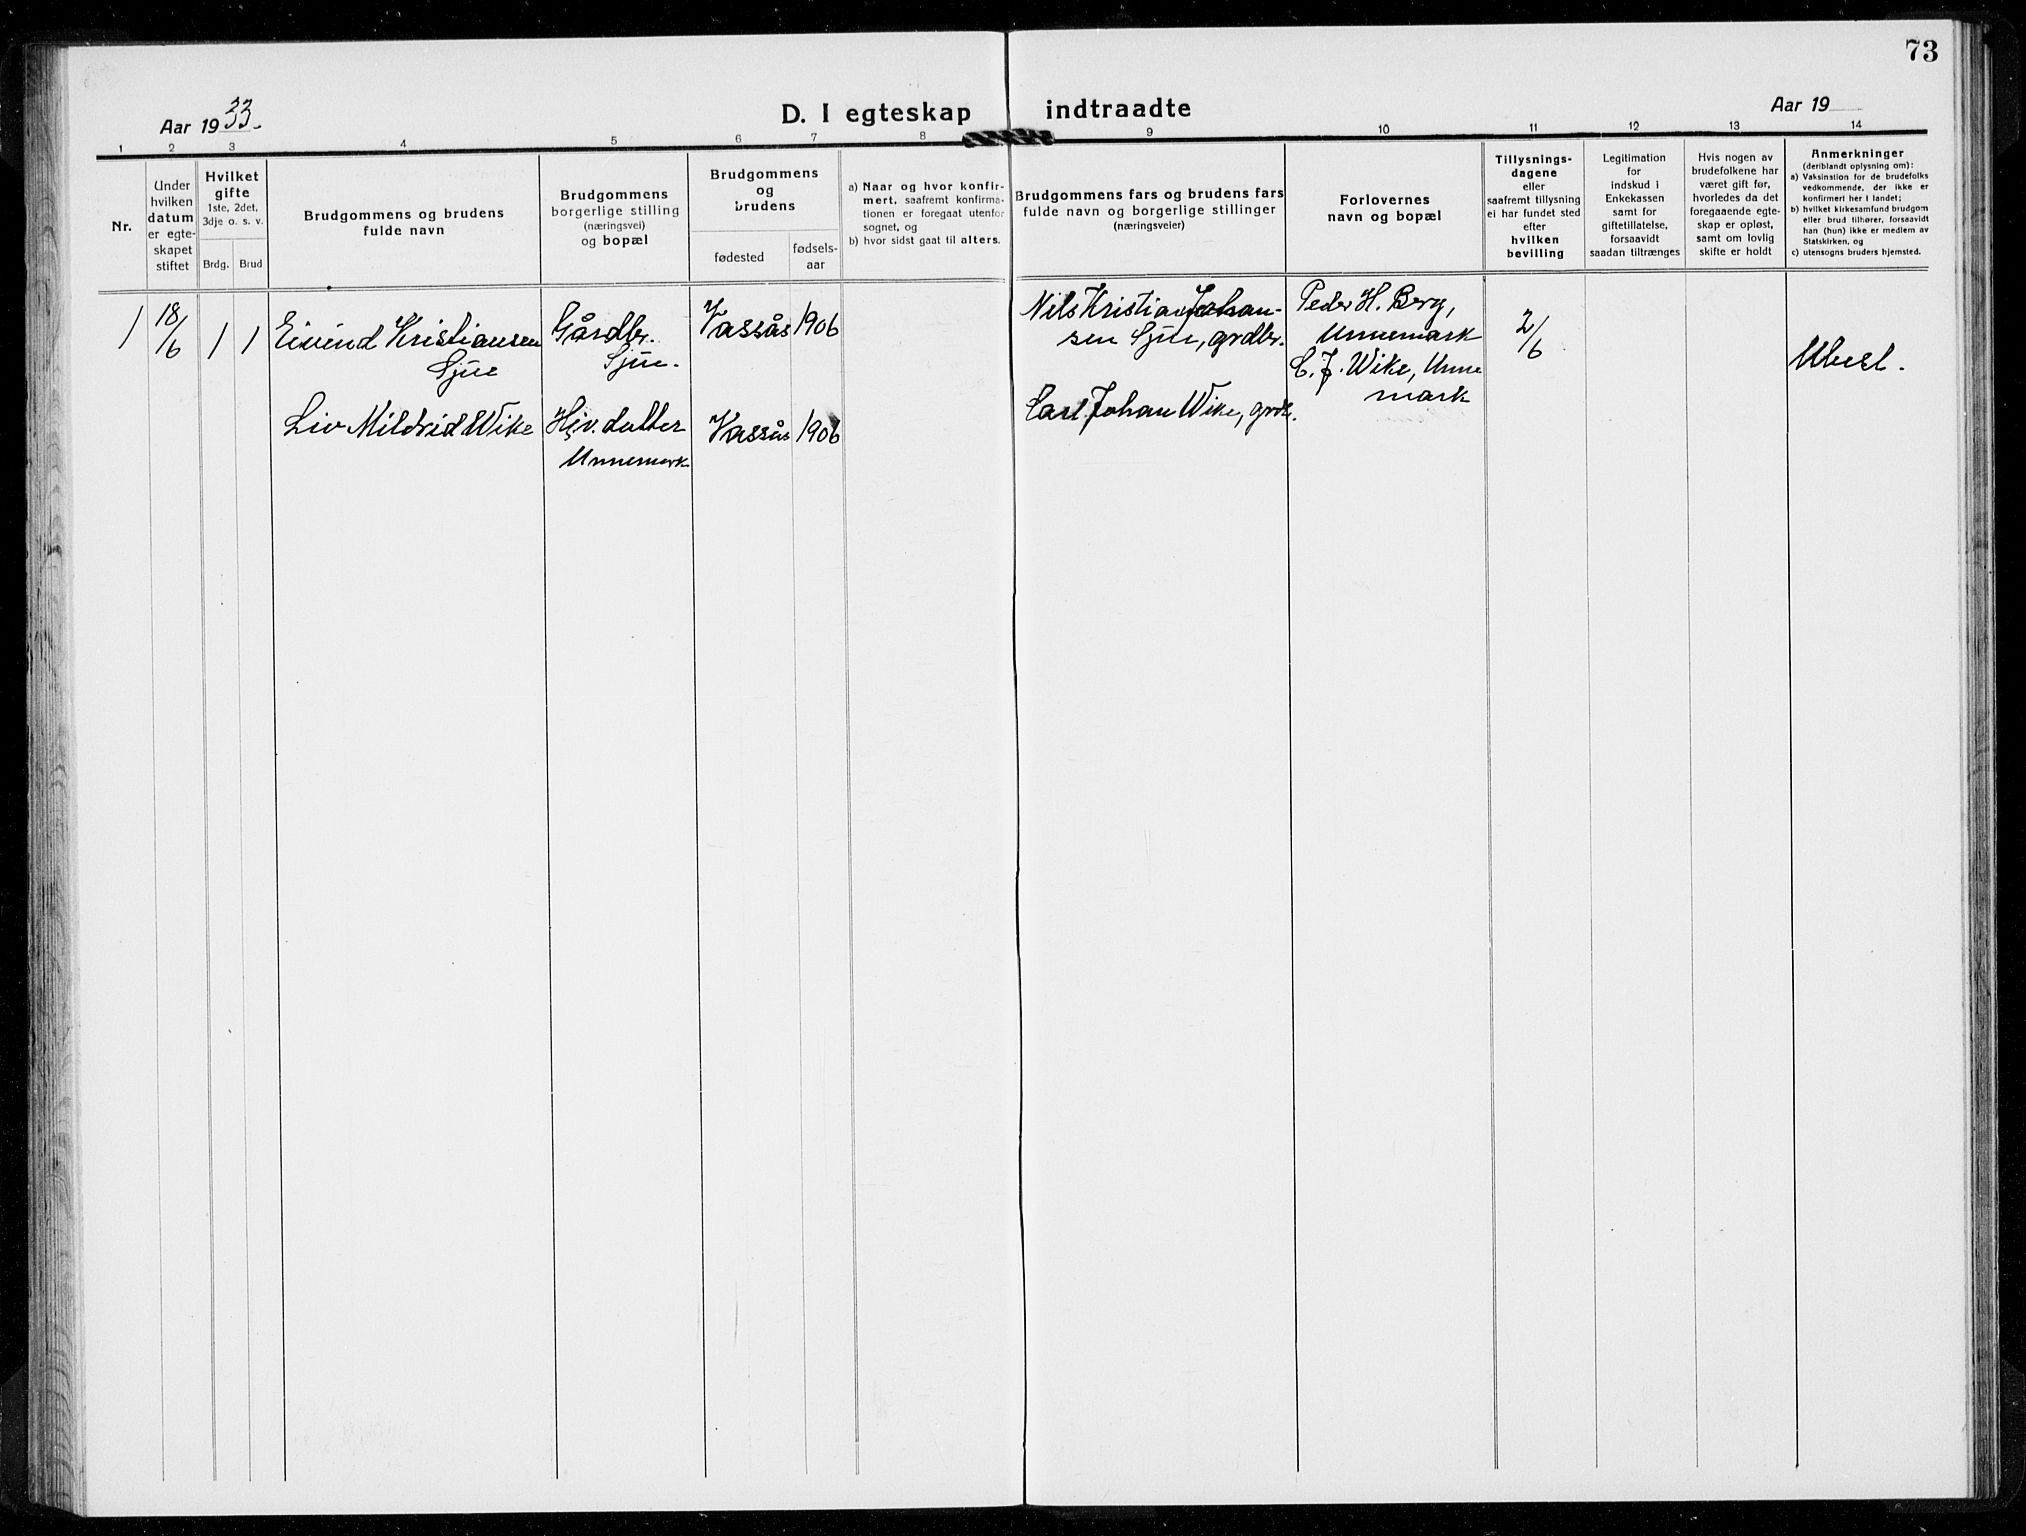 73
Aar 1933.
D. I egteskap
indtraadte
Aar 19
1
2
3
4
5
6
7
8
9
10
11
12
13
14
Nr.
Under
hvilken
datum
er egte-
skapet
stiftet
Hvilket
gifte
1ste, 2det,
3dje o. s. v.
Brdg.
Brud
Brudgommens og brudens
fulde navn
Brudgommens
borgerlige stilling
(næringsvei)
og bopæl
Brudgommens
og
brudens
fødested
fødsels-
aar
a) Naar og hvor konfir-
mert, saafremt konfirma-
tionen er foregaat utenfor
sognet, og
b) hvor sidst gaat til alters.
Brudgommens fars og brudens fars
fulde navn og borgerlige stillinger
(næringsveier)
Forlovernes
navn og bopæl
Tillysnings-
dagene
eller
saafremt tillysning
ei har fundet sted
efter
hvilken
bevilling
Legitimation
for
indskud i
Enkekassen
samt for
giftetillatelse,
forsaavidt
saadan tiltrænges
Hvis nogen av
brudefolkene har
været gift før,
hvorledes da det
foregaaende egte-
skap er opløst,
samt om lovlig
skifte er holdt
Anmerkninger
(deriblandt oplysning om):
a) Vaksination for de brudefolks
vedkommende, der ikke er
konfirmert her i landet;
b) hvilket kirkesamfund brudgom
eller brud tilhører, forsaavidt
han (hun) ikke er medlem av
Statskirken, og
c) utensogns bruders hjemsted.
1
18/6
1
1
Eivind Kristiansen
Sjue
Gårdbr.
Sjue.
Vassås
1906
Nils Kristian Johan-
sen Sjue, grdbr.
Peder H. Berg,
Unnemark
C. J. Wike, Unne
mark
2/6
Ubesl.
Liv Mildrid Wike
Hjv. datter
Unnemark
Vassås
1906
Carl Johan Wike, grdb.